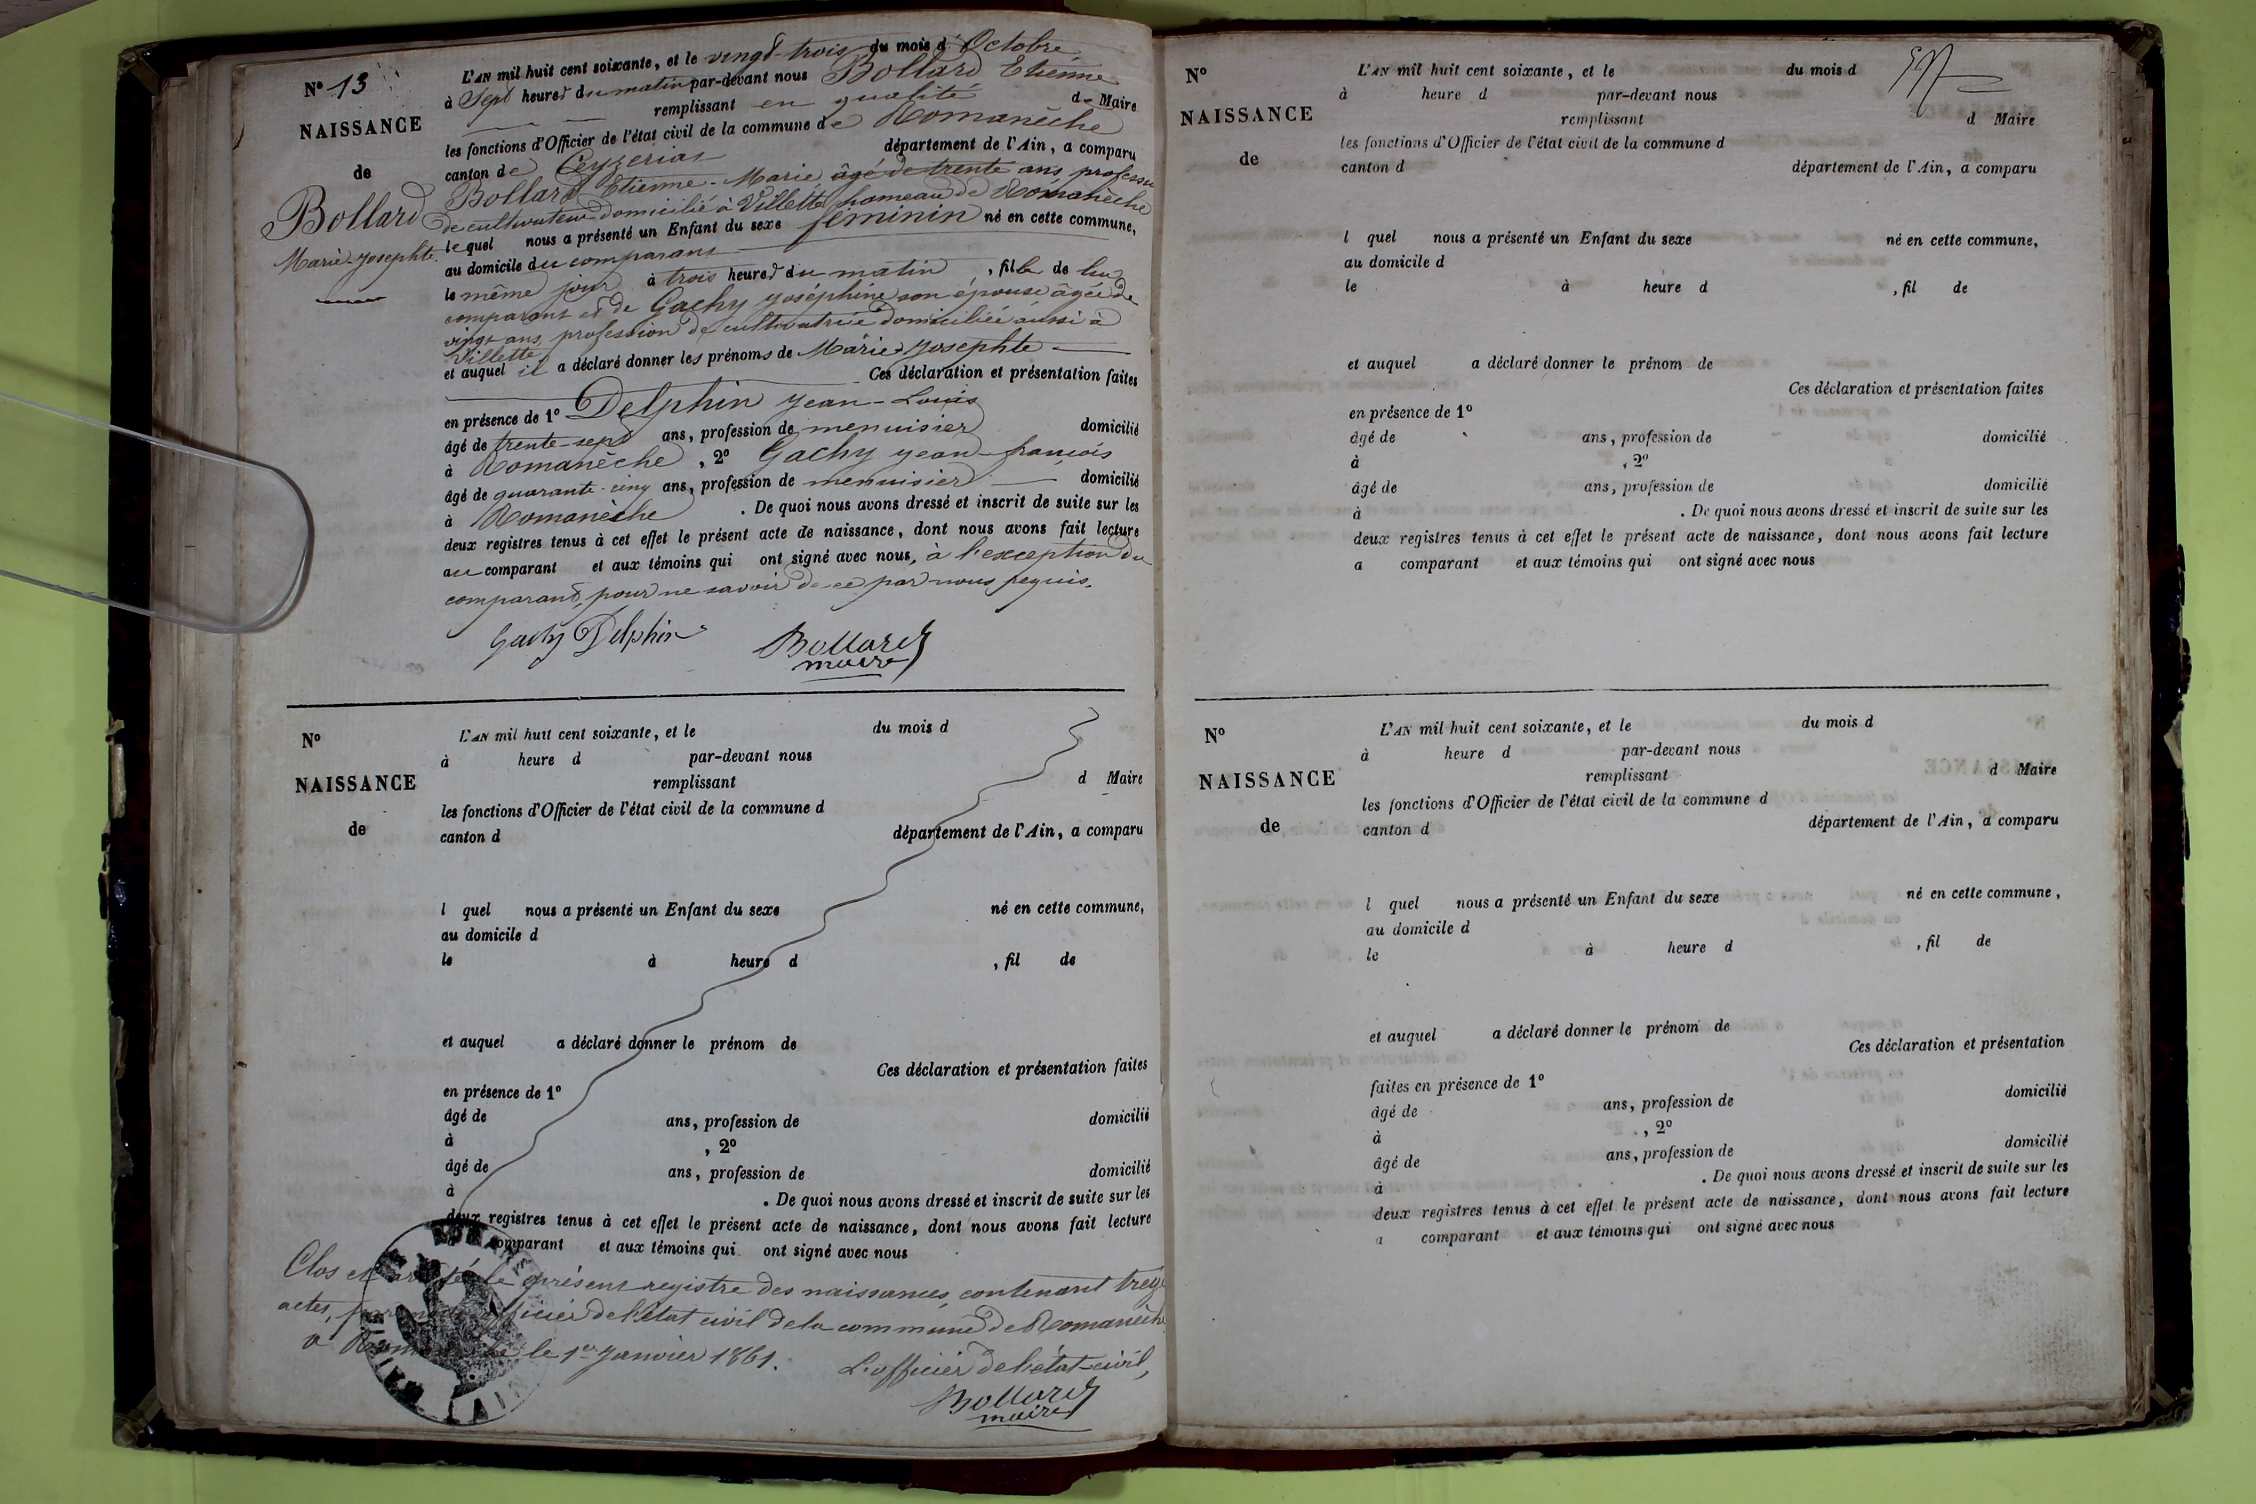 N° 13
NAISSANCE
de
Bollard
Marie Josephte
L'AN mil huit cent soixante, et le vingt-trois du mois d'Octobre
à Sept heures du matin par-devant nous Bollard Etienne
remplissant en qualité de Maire
les fonctions d'Officier de l'état civil de la commune de Romanèche
canton de Ceyzeriat département de l'Ain, a comparu
Bollard Etienne-Marie âgé de trente ans, profession
de cultivateur domicilié à Villette hameau de Romanèche
lequel nous a présenté un Enfant du sexe féminin né en cette commune,
au domicile du comparant
le même jour à trois heures du matin, fille de lui
comparant et de Gachy Joséphine son épouse âgée de
vingt ans, profession de cultivatrice domiciliée aussi à
Villette
et auquel il a déclaré donner les prénoms de Marie Josephte
Ces déclaration et présentation faites
en présence de 1° Delphin Jean-Louis
âgé de trente-sept ans, profession de menuisier domicilié
à Romanèche, 2° Gachy Jean-françois
âgé de quarante-cinq ans, profession de menuisier domicilié
à Romanèche. De quoi nous avons dressé et inscrit de suite sur les
deux registres tenus à cet effet le présent acte de naissance, dont nous avons fait lecture
au comparant et aux témoins qui ont signé avec nous, à l'exception du
comparant, pour ne savoir de ce par nous requis.
Gachy Delphin Bollard
maire
N°
NAISSANCE
de
L'AN mil huit cent soixante, et le du mois d
à heure d par-devant nous
remplissant d Maire
les fonctions d'Officier de l'état civil de la commune d
canton d département de l'Ain, a comparu
l quel nous a présenté un Enfant du sexe né en cette commune,
au domicile d
le à heure d , fil de
et auquel a déclaré donner le prénom de
Ces déclaration et présentation faites
en présence de 1°
âgé de ans, profession de domicilié
à , 2°
âgé de ans, profession de domicilié
à . De quoi nous avons dressé et inscrit de suite sur les
deux registres tenus à cet effet le présent acte de naissance, dont nous avons fait lecture
comparant et aux témoins qui ont signé avec nous
Clos et arrêté le présent registre des naissances, contenant treize
actes, par nous officier de l'état civil de la commune de Romanèche
à Romanèche le 1er Janvier 1861.
L'officier de l'état-civil,
Bollard
maire
N°
NAISSANCE
de
L'AN mil huit cent soixante, et le du mois d
à heure d par-devant nous
remplissant d Maire
les fonctions d'Officier de l'état civil de la commune d
canton d département de l'Ain, a comparu
l quel nous a présenté un Enfant du sexe né en cette commune,
au domicile d
le à heure d , fil de
et auquel a déclaré donner le prénom de
Ces déclaration et présentation faites
en présence de 1°
âgé de ans, profession de domicilié
à , 2°
âgé de ans, profession de domicilié
à . De quoi nous avons dressé et inscrit de suite sur les
deux registres tenus à cet effet le présent acte de naissance, dont nous avons fait lecture
a comparant et aux témoins qui ont signé avec nous
N°
NAISSANCE
de
L'AN mil huit cent soixante, et le du mois d
à heure d par-devant nous
remplissant d Maire
les fonctions d'Officier de l'état civil de la commune d
canton d département de l'Ain, a comparu
l quel nous a présenté un Enfant du sexe né en cette commune,
au domicile d
le à heure d , fil de
et auquel a déclaré donner le prénom de
Ces déclaration et présentation
faites en présence de 1° domicilié
âgé de ans, profession de
à , 2°
âgé de ans, profession de domicilié
à . De quoi nous avons dressé et inscrit de suite sur les
deux registres tenus à cet effet le présent acte de naissance, dont nous avons fait lecture
a comparant et aux témoins qui ont signé avec nous